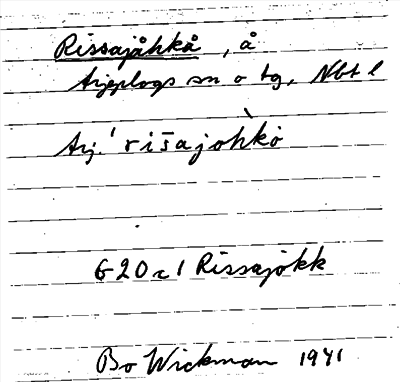 Rissajåhkå, å
Arjeplogs sn o tg, Nbt l
Arj. ˈrišajohkò
G20 c1 Rissajokk
Bo Wickman 1941